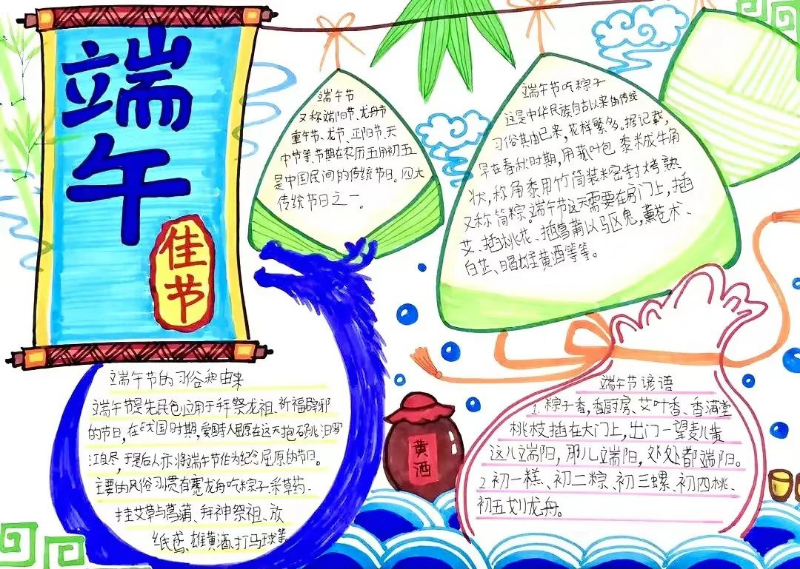 端午
佳节
端午节
又称端阳节、龙舟节
重午节、龙节、正阳节、天
中节等,节期在农历五月初五
是中国民间的传统节日。四大
传统节日之一。
端午节吃粽子
这是中华民族自古以来的传统
习俗其由已来,花样繁多。据记载,
早在春秋时期,用菰叶包黍米成牛角
状,称角黍用竹筒装米密封烤熟
又称筒粽。端午节这天需要在门上,插
艾、插桃花、插菖蒲以驱鬼,薰苍术、
白芷、喝雄黄酒等等。
端午节的习俗和由来
端午节是先民创立用于拜祭龙祖、祈福辟邪
的节日,在战国时期,爱国诗人屈原在这天抱石跳汨罗
江自尽,于是后人亦将端午节作为纪念屈原的节日。
主要的风俗习惯有赛龙舟吃粽子、采草药、
挂艾草与菖蒲、拜神祭祖、放
纸鸢、雄黄酒、打马球等
黄酒
端午节谚语
1、粽子香,香厨房、艾叶香、香满堂
桃枝插在大门上,出门一望麦儿黄
这儿端阳,那儿端阳,处处都端阳。
2、初一糕、初二粽、初三螺、初四桃、
初五划龙舟。